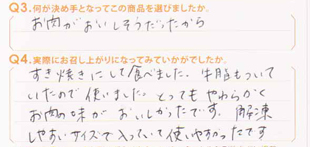 Q3.何が決め手となってこの商品を選びましたか。
お肉がおいしそうだったから
Q4.実際にお召し上がりになってみていかがでしたか。
すき焼きにして食べました。牛脂もついて
いたので使いました。とってもやわらかく
お肉の味がおいしかったです。解凍
しやすいサイズで入っていて使いやすかったです